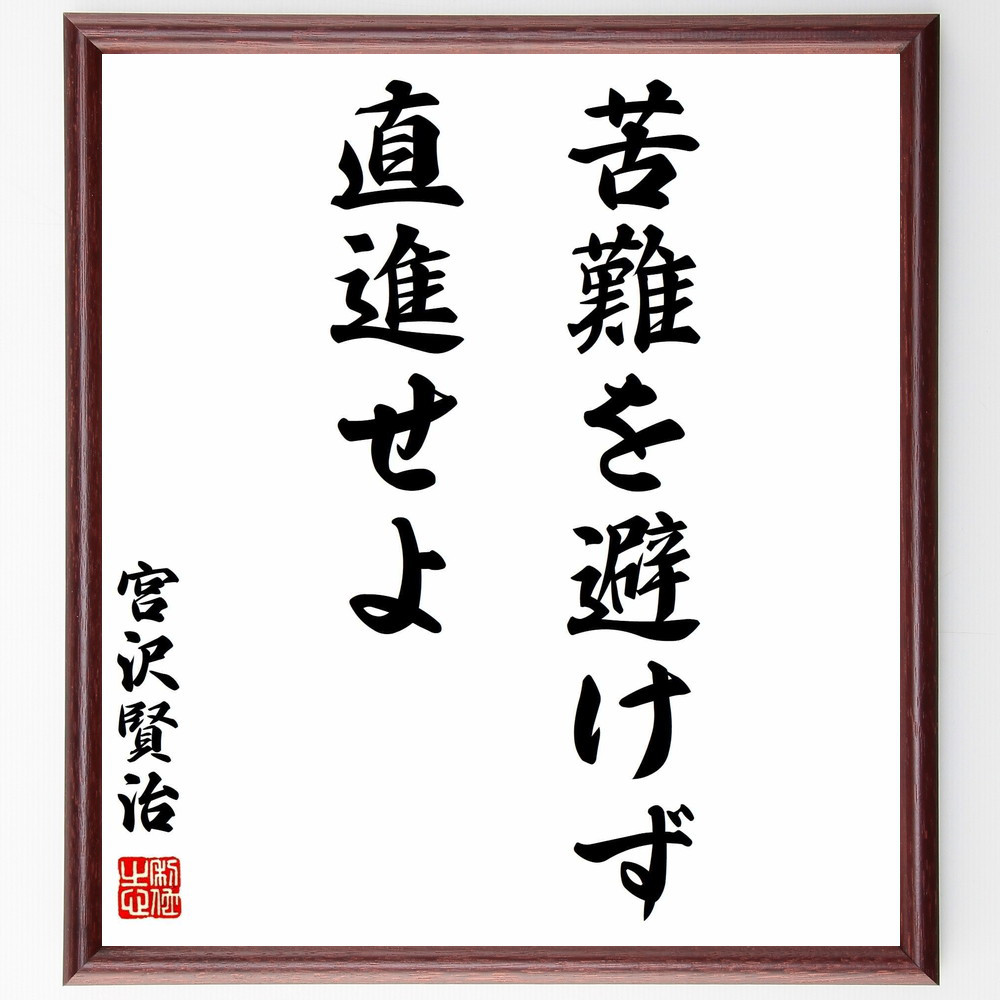 苦難を避けず
直進せよ
宮沢賢治